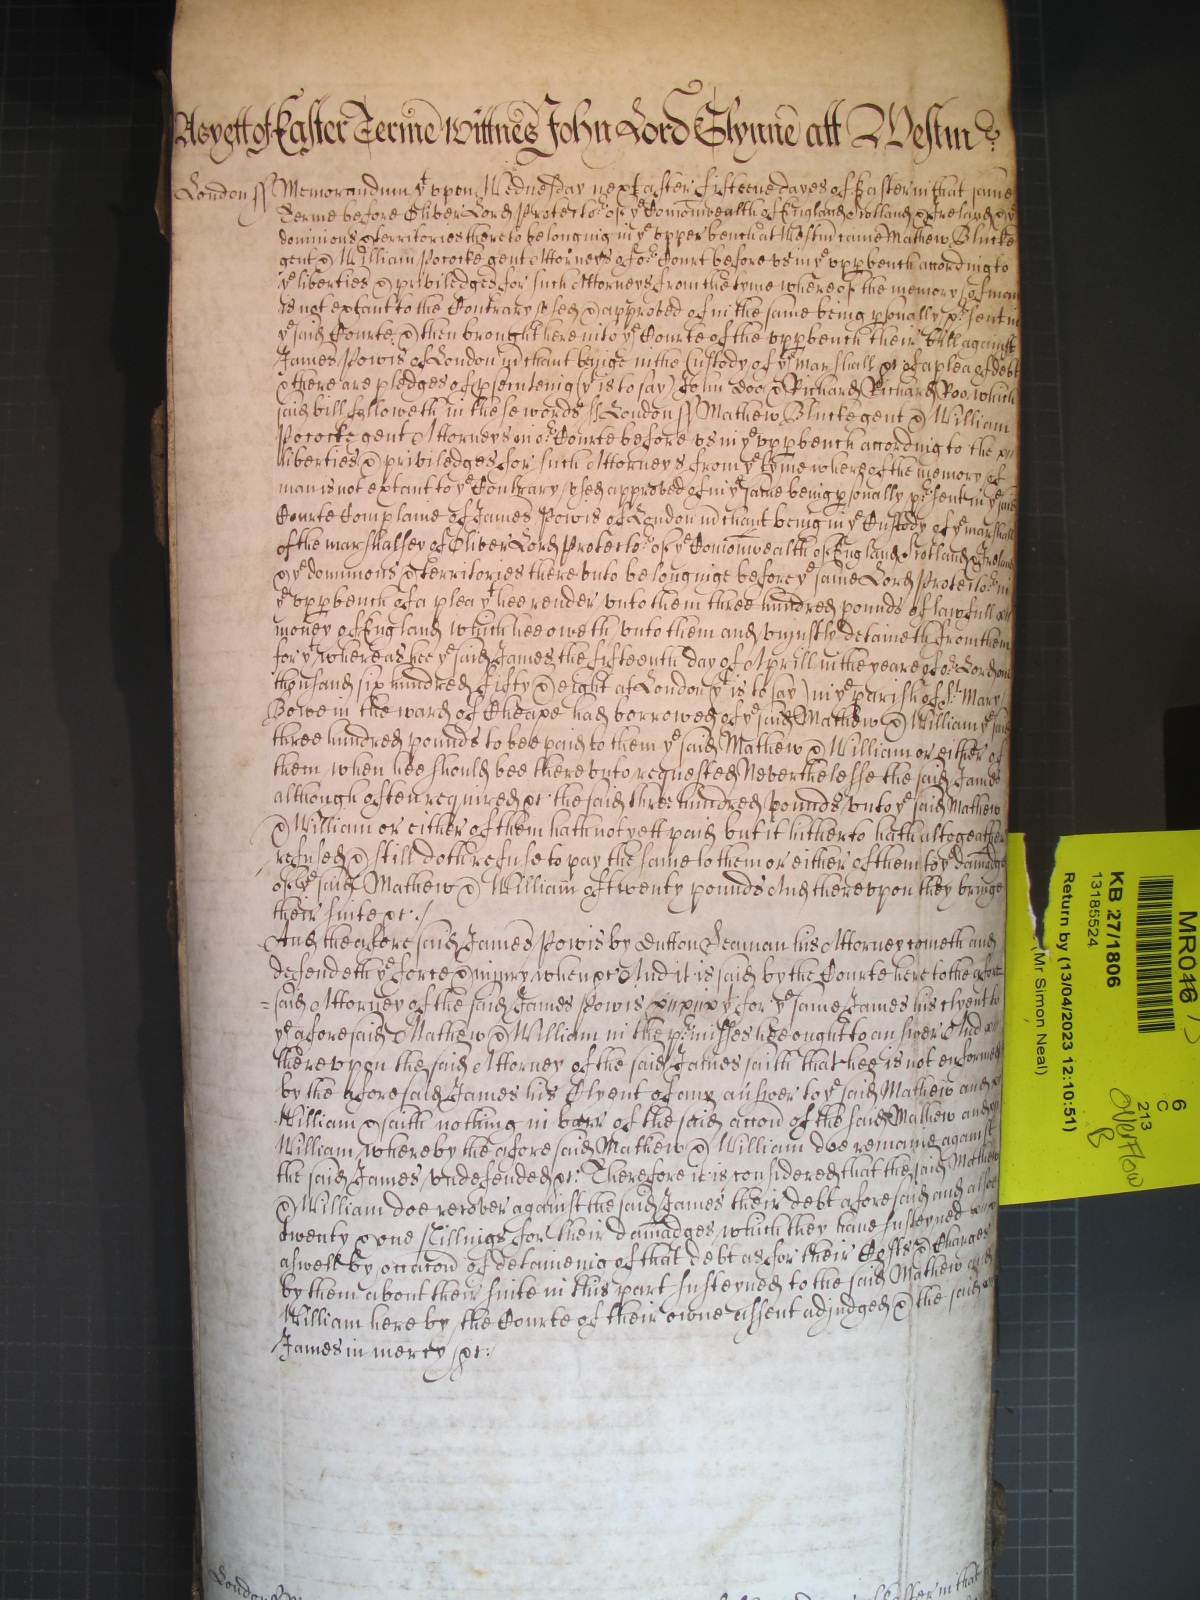 As yett of Easter Terme Wittnes John Lord Glynne att Westm
London ss Memorandum yt upon Wednesday next after fifteene dayes of Easter in that same
Terme before Oliver Lord Protector of ye Comonwealth of England Scotland & Ireland & ye
dominions & territories thereto belonging in ye upper bench at Westm came Mathew Blucke
gent & William Pococke gent Attorneys of or Court before us in ye uppbench according to
ye liberties & priviledges for such Attorneys from the tyme whereof the memory of man
is not extant to the Contrary used & approved of in the same being psonally psent in
ye said Courte & then brought here into ye Courte of the uppbench their bill against
James Powis of London mchant beinge in the Custody of ye marshall &c of a plea of debt
& there are pledges of psecuteing (yt is to say) John Doo & Richard Richard Roo, which
said bill followeth in these words ss London ss Mathew Blucke gent & William
Pococke gent Attorneys in or Courte before us in ye uppbench according to the
liberties & priviledges for such Attorneys from ye tyme whereof the memory of
man is not extant to ye Contrary used approved of in ye same being psonally psent in ye said
Courte Complaine of James Powis of London mchant being in ye Custody of ye marshall
of the marshalsey of Oliver Lord Protector of ye Comonwealth of England Scotland & Ireland
& ye dominions & territories there unto belonginge before ye same Lord Protector in
ye uppbench of a plea yt hee render unto them three hundred pounds of lawfull
money of England which hee oweth unto them and unjustly detaineth from them
for yt whereas hee ye said James the fifteenth day of Aprill in the yeare of or Lord one
thousand six hundred fifty & eight at London (yt is to say) in ye parish of St Mary
Bowe in the ward of Cheape had borrowed of ye said Mathew & William ye said
three hundred pounds to bee paid to them ye said Mathew & William or either of
them when hee should bee there unto requested Neverthelesse the said James
although often required &c the said three hundred pounds unto ye said Mathew
& William or either of them hath not yett paid but it hitherto hath altogeather
refused & still doth refuse to pay the same to them or either of them to ye damadge
of ye said Mathew & William of twenty pounds And thereupon they bringe
their suite &c
And the aforesaid James Powis by Dutton Seaman his Attorney cometh and
defendeth ye force & injury when &c And it is said by the Courte here to the afore
=said Attorney of the said James Powis yt for ye same James his clyent to
ye aforesaid Mathew & William in the pmisses hee ought to answer And
thereuppon the said Attorney of the said James saith that hee is not enformed
by the aforesaid James his Clyent of any answer to ye said Mathew and
William & saith nothing in barr of the said accon of the said Mathew and
William whereby the aforesaid Mathew & William doe remaine against
the said James undefended &c Therefore it is considered that the said Mathew
& William doe recover against the said James their debt aforesaid and alsoe
twenty & one shillings for their damadges which they have susteyned
aswell by occacon of deteineing of that debt as for their Costs & Charges
by them about their suite in this part susteyned to the said Mathew and
William here by the Courte of their owne assent adjudged & the said
James in mercy &c
London
Easter in that
MR046
KB 27/1806
13185524
Return by (13/04/2023 12:10:51)
(Mr Simon Neal)
6
C
213
Overflow
B